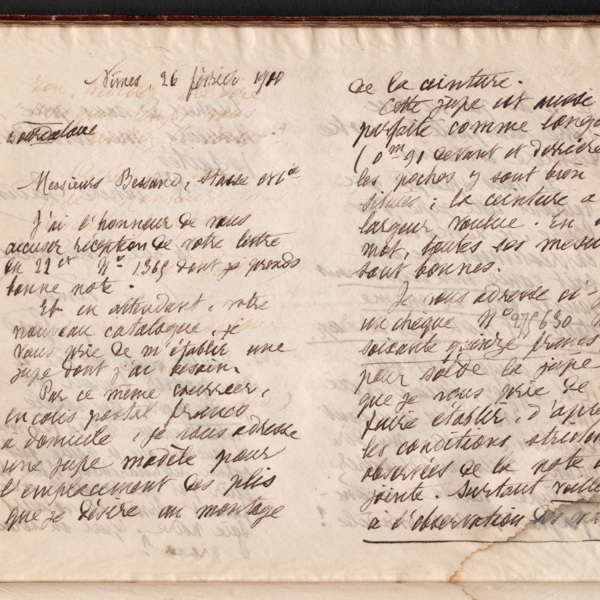 Nîmes, 26 février 1910
Messieurs Bessand, Stasse et Cie
J'ai l'honneur de vous
accuser réception de votre lettre
en 22 ct No 1365 dont je prends
bonne note.
Et en attendant, votre
nouveau catalogue, je
vous prie de m'établir une
jupe dont j'ai besoin.
Par ce même courrier,
en colis postal franco
à domicile, je vous adresse
une jupe modèle pour
l'emplacement des plis
que je désire au montage
de la ceinture.
Cette jupe est aussi
parfaite comme longu
(0m91 devant et derrière
les poches y sont bien
situées ; la ceinture a
largeur voulue. En
mot, toutes les mesu
sont bonnes.
Je vous adresse ci-
un chèque No 275630
soixante quinze francs
pour solde de la jupe
que je vous prie de
faire établir, d'apr
les conditions stricte
observées de la note
jointe. Surtout veille
à l'observation des